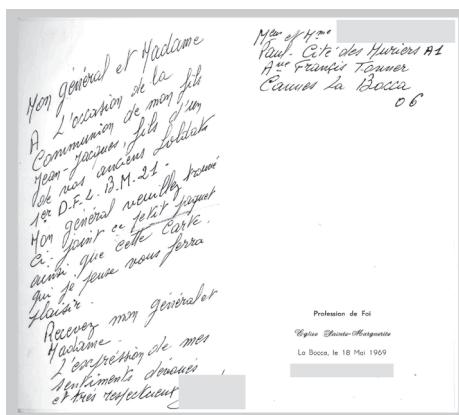 Mon général et Madame
A L'occasion de la
Communion de mon fils
Jean-Jacques, fils d'un
de vos anciens soldats
1er D.F.L. B.M.21-
Mon général veuillez trouvé
ci-joint ce petit paquet
ainsi que cette carte
qui je pense vous ferra
plaisir.
Recevez mon général et
Madame.
L'expréssion de mes
sentiments dévoués
et très respectueux
Mr et Mme
Paul-Cité des Muriers A1
Aue Francis Tonner
Cannes La Bocca
06
Profession de Foi
Eglise Sainte-Marguerite
La Bocca, le 18 Mai 1969